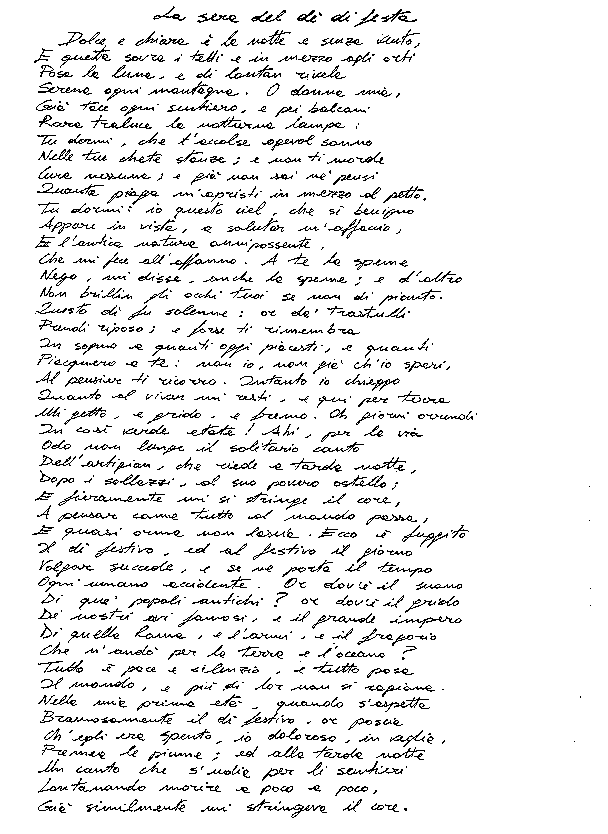 La sera del dì di festa
Dolce e chiara è la notte e senza vento,
E queta sovra i tetti e in mezzo agli orti
Posa la luna, e di lontan rivela
Serena ogni montagna. O donna mia,
Già tace ogni sentiero, e pei balconi
Rara traluce la notturna lampa:
Tu dormi, che t'accolse agevol sonno
Nelle tue chete stanze; e non ti morde
Cura nessuna; e già non sai nè pensi
Quanta piaga m'apristi in mezzo al petto.
Tu dormi: io questo ciel, che sì benigno
Appare in vista, a salutar m'affaccio,
E l'antica natura onnipossente,
Che mi fece all'affanno. A te la speme
Nego, mi disse, anche la speme; e d'altro
Non brillin gli occhi tuoi se non di pianto.
Questo dì fu solenne: or da' trastulli
Prendi riposo; e forse ti rimembra
In sogno a quanti oggi piacesti, e quanti
Piacquero a te: non io, non già ch'io speri,
Al pensier ti ricorro. Intanto io chieggo
Quanto a viver mi resti, e qui per terra
Mi getto, e grido, e fremo. Oh giorni orrendi
In così verde etate! Ahi, per la via
Odo non lunge il solitario canto
Dell'artigian, che riede a tarda notte,
Dopo i sollazzi, al suo povero ostello;
E fieramente mi si stringe il core,
A pensar come tutto al mondo passa,
E quasi orma non lascia. Ecco è fuggito
Il dì festivo, ed al festivo il giorno
Volgar succede, e se ne porta il tempo
Ogni umano accidente. Or dov'è il suono
Di que' popoli antichi? or dov'è il grido
De' nostri avi famosi, e il grande impero
Di quella Roma, e l'armi, e il fragorio
Che n'andò per la terra e l'oceano?
Tutto è pace e silenzio, e tutto posa
Il mondo, e più di lor non si ragiona.
Nella mia prima età, quando s'aspetta
Bramosamente il dì festivo, or poscia
Ch'egli era spento, io doloroso, in veglia,
Premea le piume; ed alla tarda notte
Un canto che s'udia per li sentieri
Lontanando morire a poco a poco,
Già similmente mi stringeva il core.